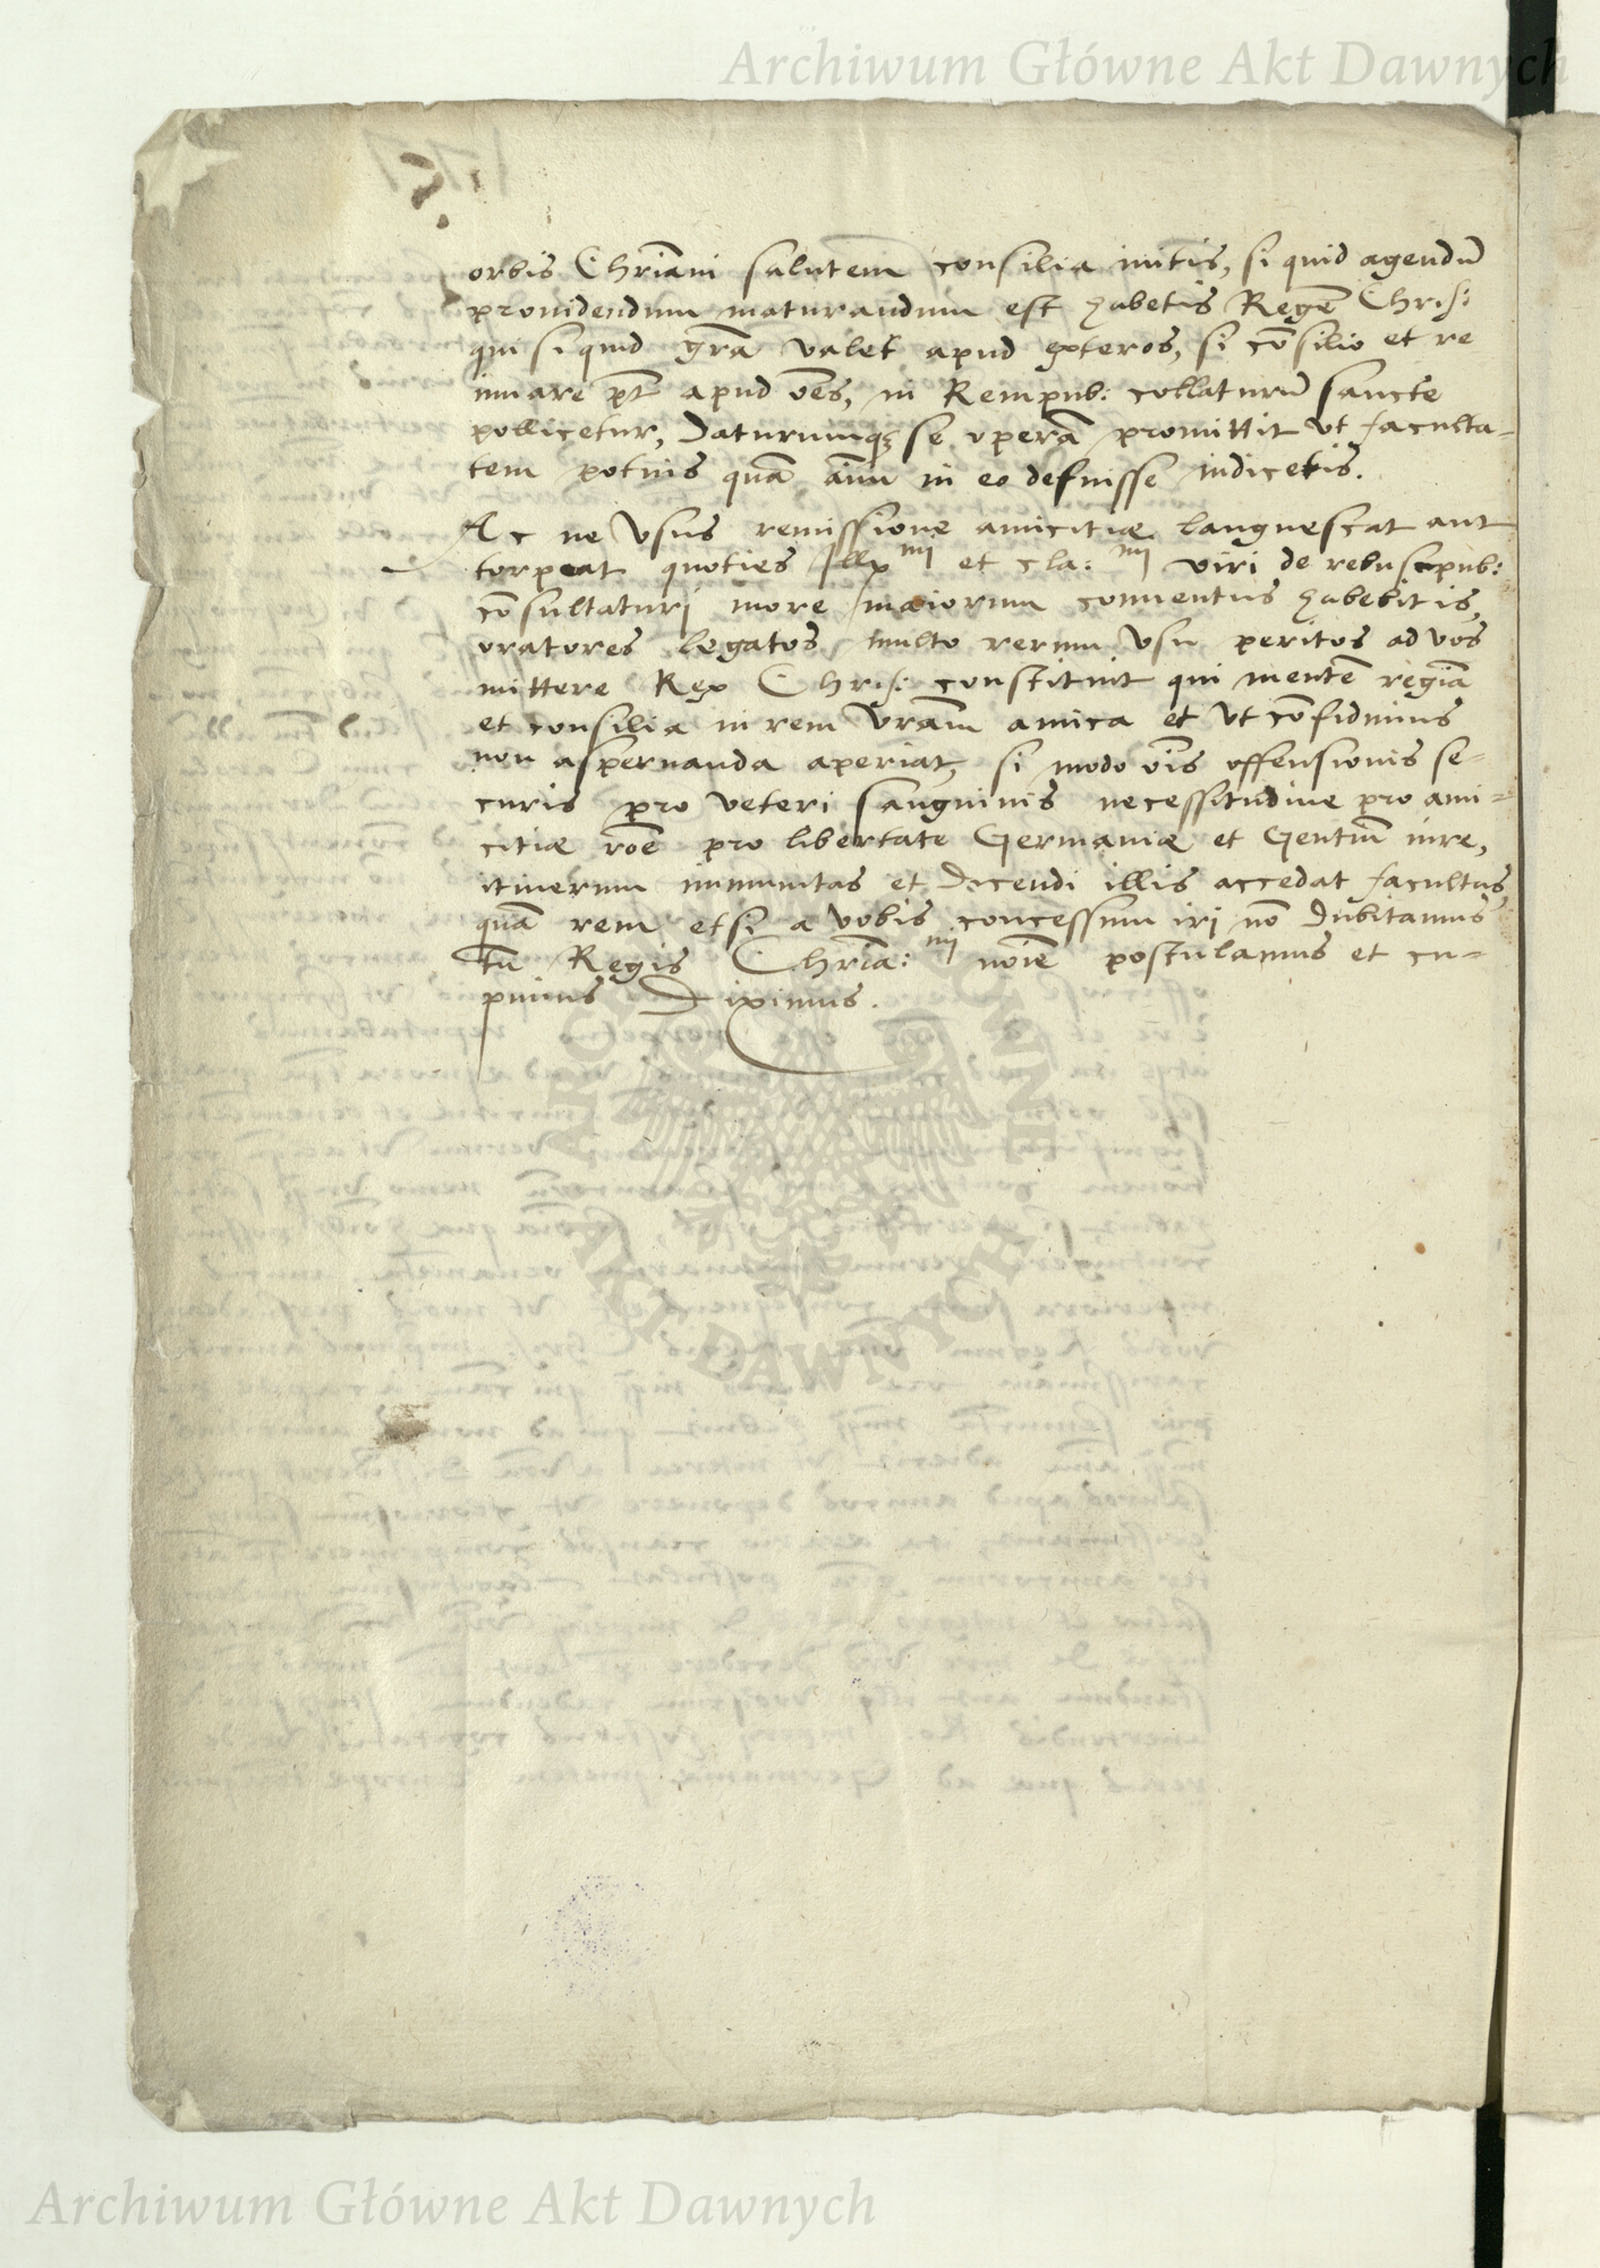 Archiwum Główne Akt Dawnych
orbis Chriãni salutem consilia initis, si quid agendũ
prouidendum maturandum est habetis Regẽ Chris:
qui si quid grã valet apud exteros, si cõsilio et re
iuuare põt apud oẽs, in Rempub: collaturũ sancte
pollicetur, daturumq; se operã promittit vt faculta=
tem potius quã aĩm in eo defuisse iudicetis.
Ac ne vsus remissione amicitiæ languescat aut
torpeat quoties Illmi et cla:mi viri de rebus pub:
cõsultaturj more maiorum conuentus habebitis,
oratores legatos multo rerum vsu peritos ad vos
mittere Rex Chris: constituit qui mentẽ regiã
et consilia in rem vrãm amica et vt cõfidimus
non aspernanda aperiat, si modo oĩs offensionis se=
curis pro veteri sanguinis necessitudine pro ami=
citiæ rõe pro libertate Germaniæ et Gentiũ iure,
itinerum immunitas et dicendi illis accedat facultas
quã rem etsi a vobis concessum iri nõ dubitamus
tñ Regis Chriã:mj noĩe postulamus et cu=
pimus Diximus.
ARCHIWUM GŁÓWNE AKT DAWNYCH
Archiwum Główne Akt Dawnych